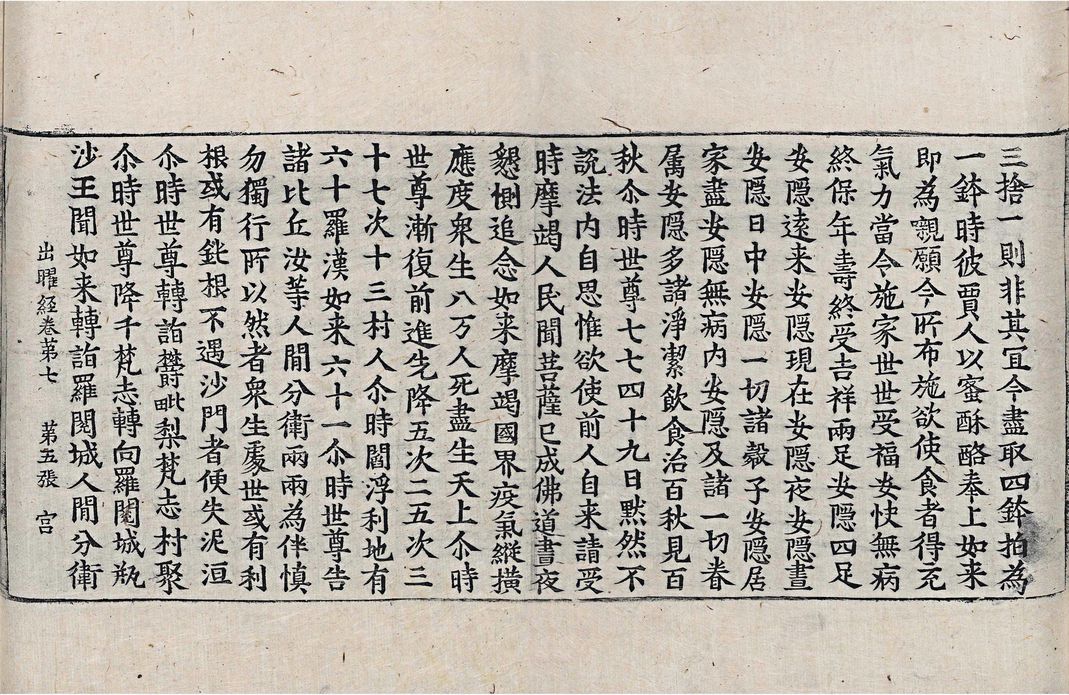 三捨一則非其宜今盡取四鉢拍為
一鉢時彼賈人以蜜酥酪奉上如来
即為嚫願今所布施欲使食者得充
氣力當令施家世世受福安快無病
終保年壽終受吉祥兩足安隱四足
安隱遠来安隱現在安隱夜安隱晝
安隱日中安隱一切諸穀子安隱居
家盡安隱無病内安隱及諸一切眷
属安隱多諸淨潔飲食治百秋見百
秋尒時世尊七七四十九日默然不
說法内自思惟欲使前人自来請受
時摩竭人民聞菩薩已成佛道晝夜
懇惻追念如来摩竭國界疫氣縱橫
應度衆生八万人死盡生天上尒時
世尊漸復前進先降五次二五次三
十七次十三村人尒時閻浮利地有
六十羅漢如来六十一尒時世尊告
諸比丘汝等人間分衛兩兩為伴慎
勿獨行所以然者衆生處世或有利
根或有鈍根不遇沙門者便失泥洹
尒時世尊轉詣欝毗梨梵志村聚
尒時世尊降千梵志轉向羅閱城瓶
沙王聞如来轉詣羅閱城人間分衛
出曜經卷第七 第五張 宫